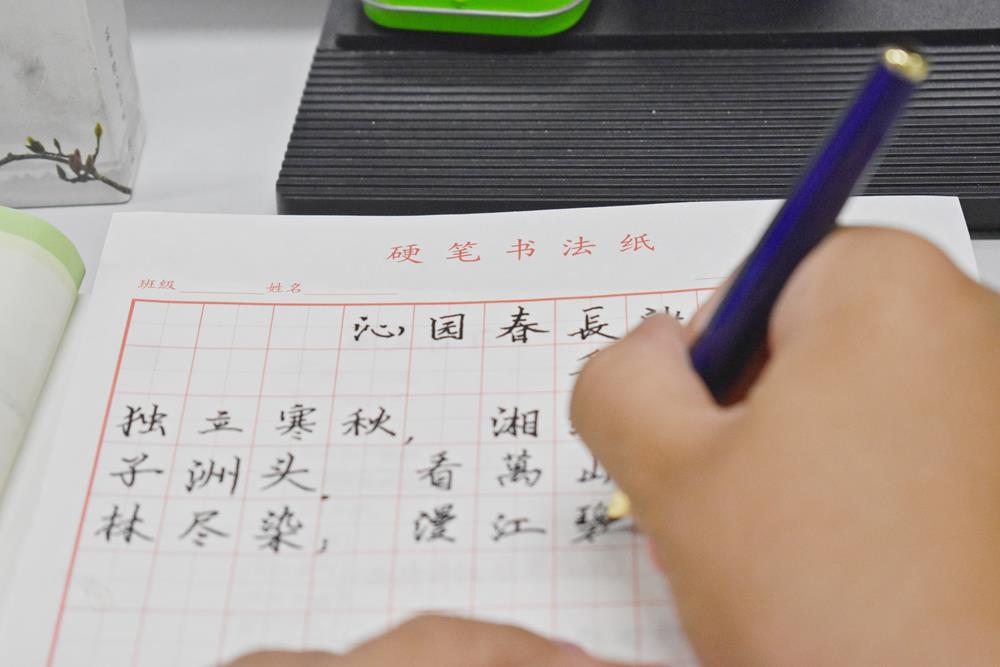 硬笔书法纸
班级 姓名
沁园春長
独立寒秋，湘
子洲头．看萬山
林尽染，漫江碧